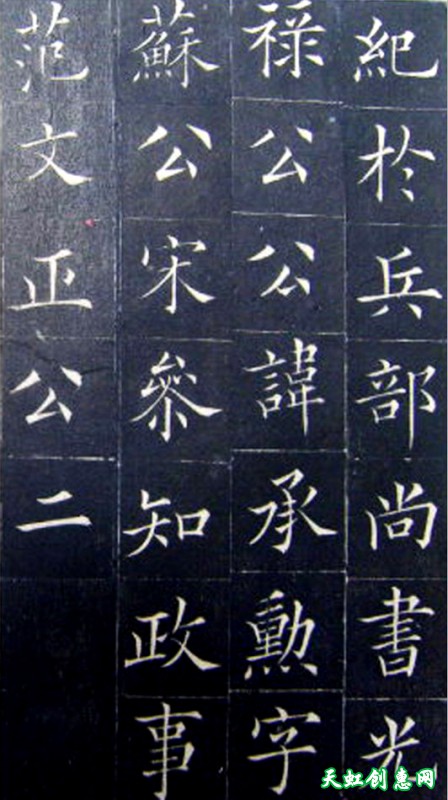 紀於兵部尚書光
禄公公諱承勳字
蘇公宋叅知政事
范文正公二
天虹创惠网